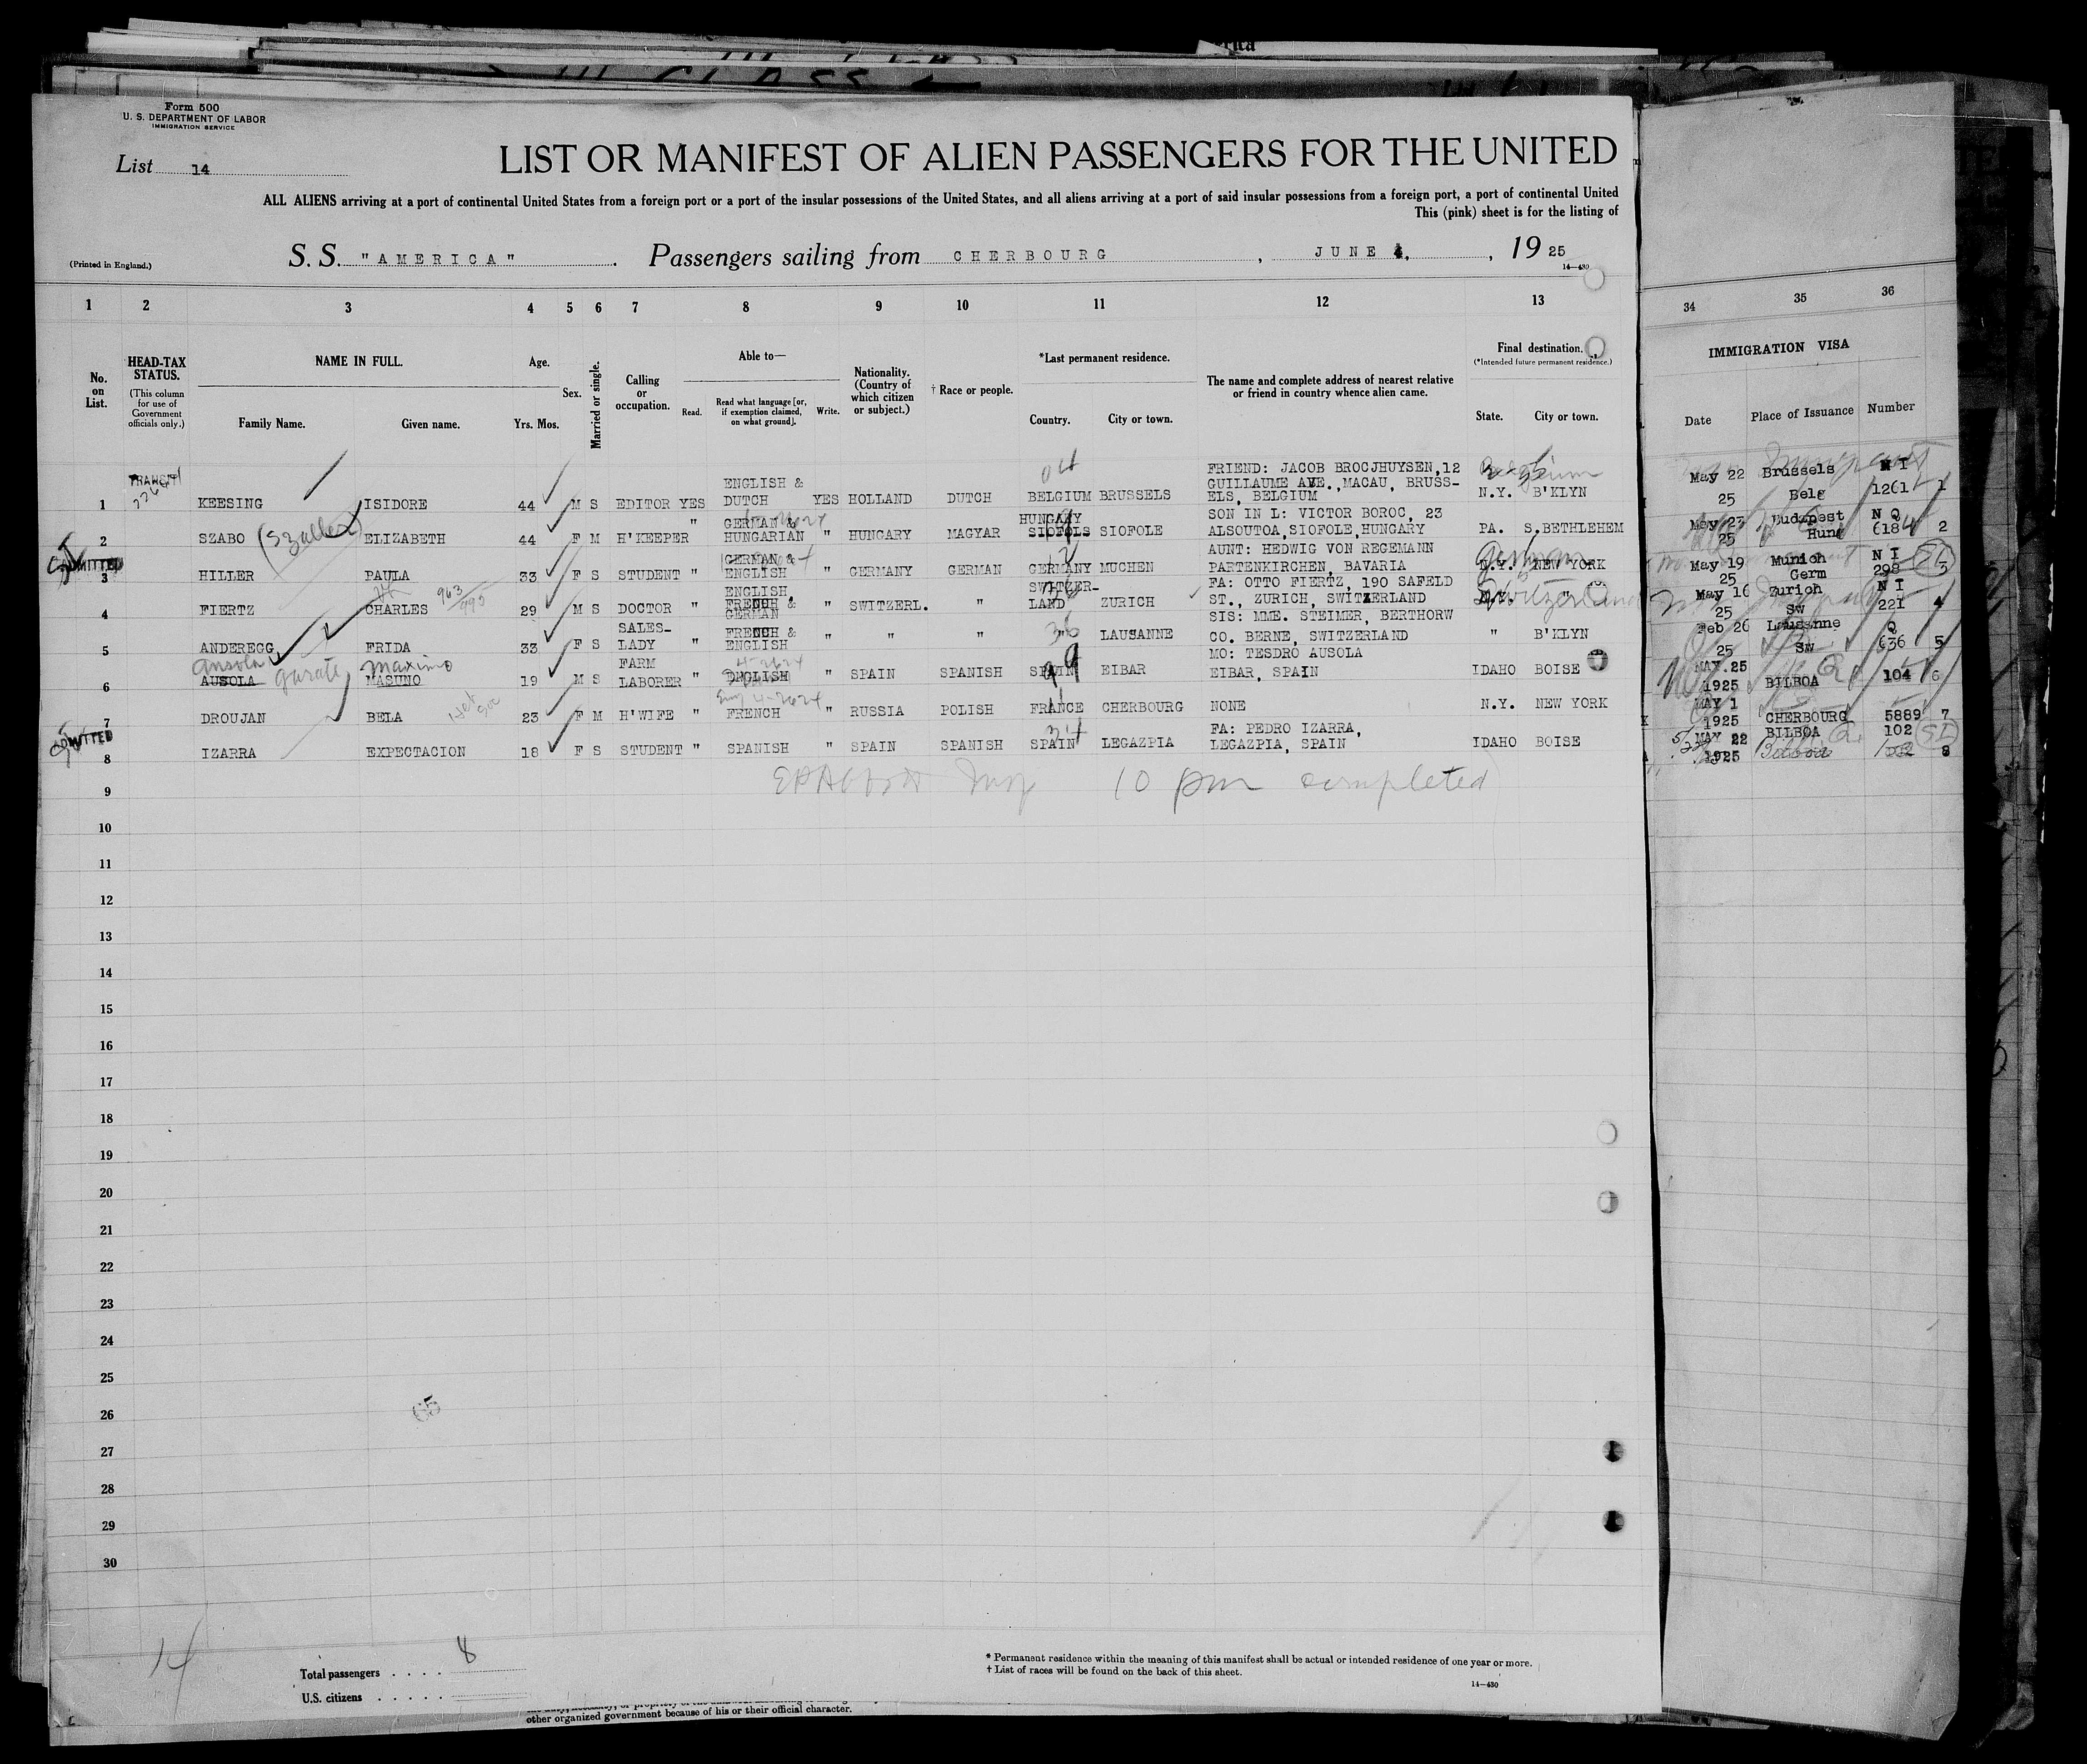 Form 500
U. S. DEPARTMENT OF LABOR
IMMIGRATION SERVICE
List 14
LIST OR MANIFEST OF ALIEN PASSENGERS FOR THE UNITED
ALL ALIENS arriving at a port of continental United States from a foreign port or a port of the insular possessions of the United States, and all aliens arriving at a port of said insular possessions from a foreign port, a port of continental United
This (pink) sheet is for the listing of
(Printed in England.)
S. S. "AMERICA" . Passengers sailing from CHERBOURG , JUNE 4, , 19 25
14—430
1 2 3 4 5 6 7 8 9 10 11 12 13 34 35 36
No. on List.
HEAD-TAX STATUS.
(This column for use of Government officials only.)
NAME IN FULL.
Family Name. Given name.
Age.
Yrs. Mos.
Sex.
Married or single.
Calling or occupation.
Able to—
Read. Read what language [or, if exemption claimed, on what ground]. Write.
Nationality. (Country of which citizen or subject.)
† Race or people.
*Last permanent residence.
Country. City or town.
The name and complete address of nearest relative or friend in country whence alien came.
Final destination.
(*Intended future permanent residence.)
State. City or town.
IMMIGRATION VISA
Date Place of Issuance Number
TRANSIT
1 KEESING ISIDORE 44 M S EDITOR YES ENGLISH & DUTCH YES HOLLAND DUTCH BELGIUM BRUSSELS FRIEND: JACOB BROCJHUYSEN,12 GUILLAUME AVE.,MACAU, BRUSS-ELS, BELGIUM N.Y. B'KLYN Belgium May 22 25 Brussels Belg N I 1261 1
2 SZABO (Szaller) ELIZABETH 44 F M H'KEEPER " GERMAN & HUNGARIAN " HUNGARY MAGYAR HUNGARY SIOFOLS SIOFOLE SON IN L: VICTOR BOROC, 23 ALSOUTOA,SIOFOLE,HUNGARY PA. S.BETHLEHEM May 23 25 Budapest Hung N Q 6184 2
ADMITTED
3 HILLER PAULA 33 F S STUDENT " GERMAN & ENGLISH " GERMANY GERMAN GERMANY MUCHEN AUNT: HEDWIG VON REGEMANN PARTENKIRCHEN, BAVARIA N.Y. NEW YORK German May 19 25 Munich Germ N I 298 3
4 FIERTZ CHARLES 963/995 29 M S DOCTOR " ENGLISH, FRENCH & GERMAN " SWITZERL. " SWITZER-LAND ZURICH FA: OTTO FIERTZ, 190 SAFELD ST., ZURICH, SWITZERLAND " Switzerland May 16 25 Zurich Sw N I 221 4
5 ANDEREGG FRIDA 33 F S SALES-LADY " FRENCH & ENGLISH " " " " LAUSANNE SIS: MME. STEIMER, BERTHORW CO. BERNE, SWITZERLAND " B'KLYN Feb 26 25 Lausanne Sw Q 636 5
Ansola Garate Maximo
6 AUSOLA MASUNO 19 M S FARM LABORER " ENGLISH " SPAIN SPANISH SPAIN EIBAR MO: TESDRO AUSOLA EIBAR, SPAIN IDAHO BOISE MAY.25 1925 BILBOA 104 6
7 DROUJAN BELA 23 F M H'WIFE " FRENCH " RUSSIA POLISH FRANCE CHERBOURG NONE N.Y. NEW YORK MAY 1 1925 CHERBOURG 5889 7
ADMITTED
8 IZARRA EXPECTACION 18 F S STUDENT " SPANISH " SPAIN SPANISH SPAIN LEGAZPIA FA: PEDRO IZARRA, LEGAZPIA, SPAIN IDAHO BOISE MAY 22 1925 BILBOA 102 8
10 pm completed
9
10
11
12
13
14
15
16
17
18
19
20
21
22
23
24
25
26
27
28
29
30
65
14
Total passengers . . . . 8
U.S. citizens . . . . .
* Permanent residence within the meaning of this manifest shall be actual or intended residence of one year or more.
† List of races will be found on the back of this sheet.
14—430
other organized government because of his or their official character.